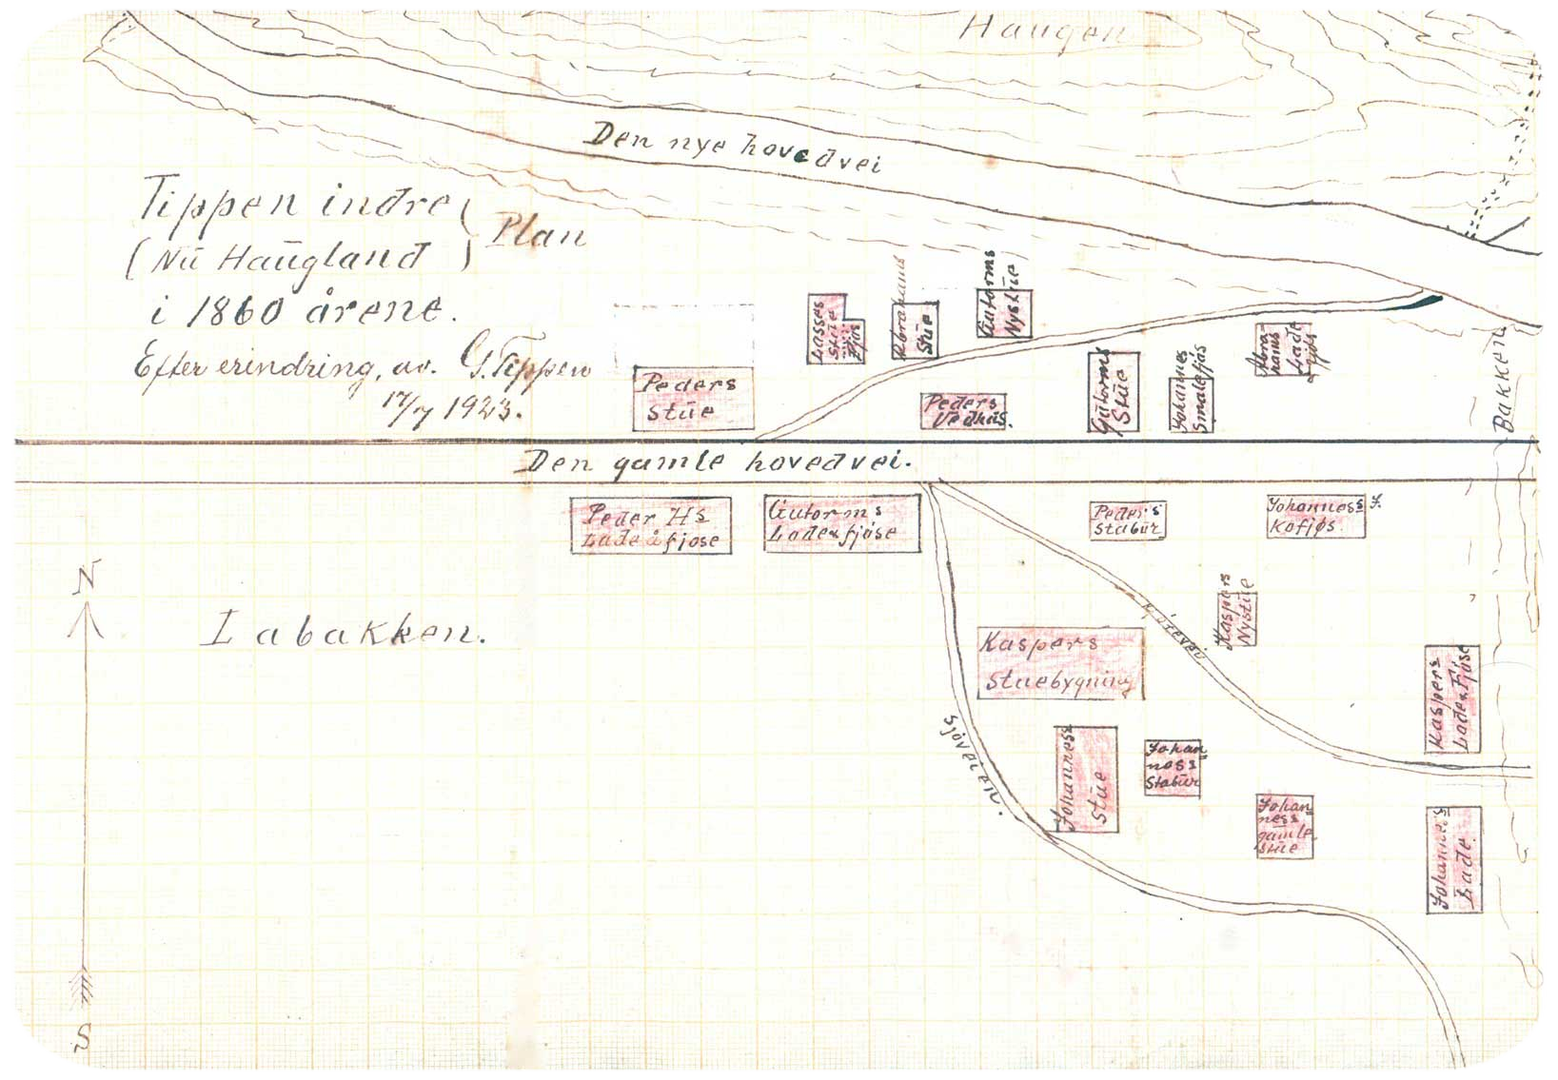 Haugen
Den nye hovedvei
Tippen indre
(Nū Haūgland) Plan
i 1860 årene.
Efter erindring, av. G. Tippen
17/7 1923.
Lasses
Stūe
Fjøs
Abrahams
Stūe
Gūtorms
Nystūe
Peders
Stūe
Peders
Vedhūs.
Gūtorms
Stūe
Johannes
Smalefjøs
Abra-
hams
Lade
Bakken
Den gamle hovedvei.
Peder Hs
Lade & fjøse
Gūtorms
Lade & fjøse
Peder's
Stabūr
Johanness J.
Kofjøs.
N
Labakken.
Kaspers
Nystūe
Kaspers
Stuebygning
Kaspers
Lade & Fjøse
Sjøveien.
Johanness
Stūe
Johan
ness
Stabūr
Johan
ness
gamle
stūe
Johannes's
Lade.
S